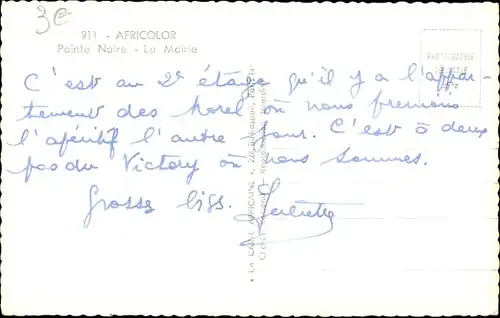 3€
911 - AFRICOLOR
Pointe Noire - La Mairie
PHOTOGRAPHIE
C'est au 2e étage qu'il y a l'appar-
tement des Morel où nous prenions
l'apéritif l'autre jour. C'est à deux
pas du Victory où nous sommes.
Grosses bises.
LA CARTE AFRICAINE